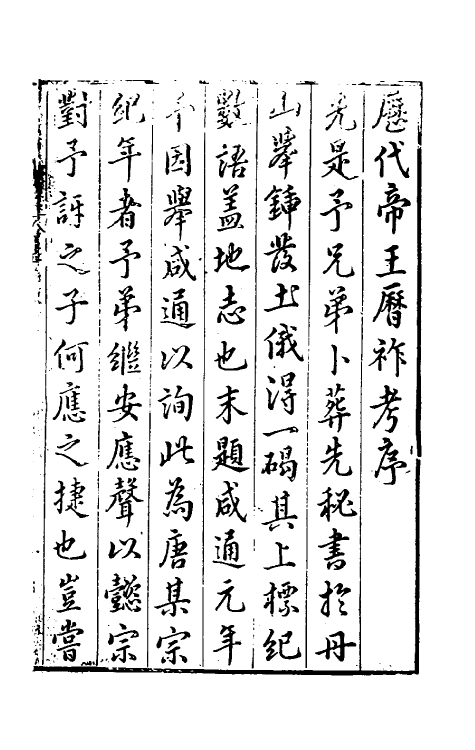 歷代帝王曆祚考序
先是予兄弟卜葬先秘書於丹
山舉鍤發土俄得一碣其上標紀
數語盖地志也末題咸通元年
予因舉咸通以詢此為唐某宗
紀年者予弟繼安應聲以懿宗
對予訝之子何應之捷也豈嘗